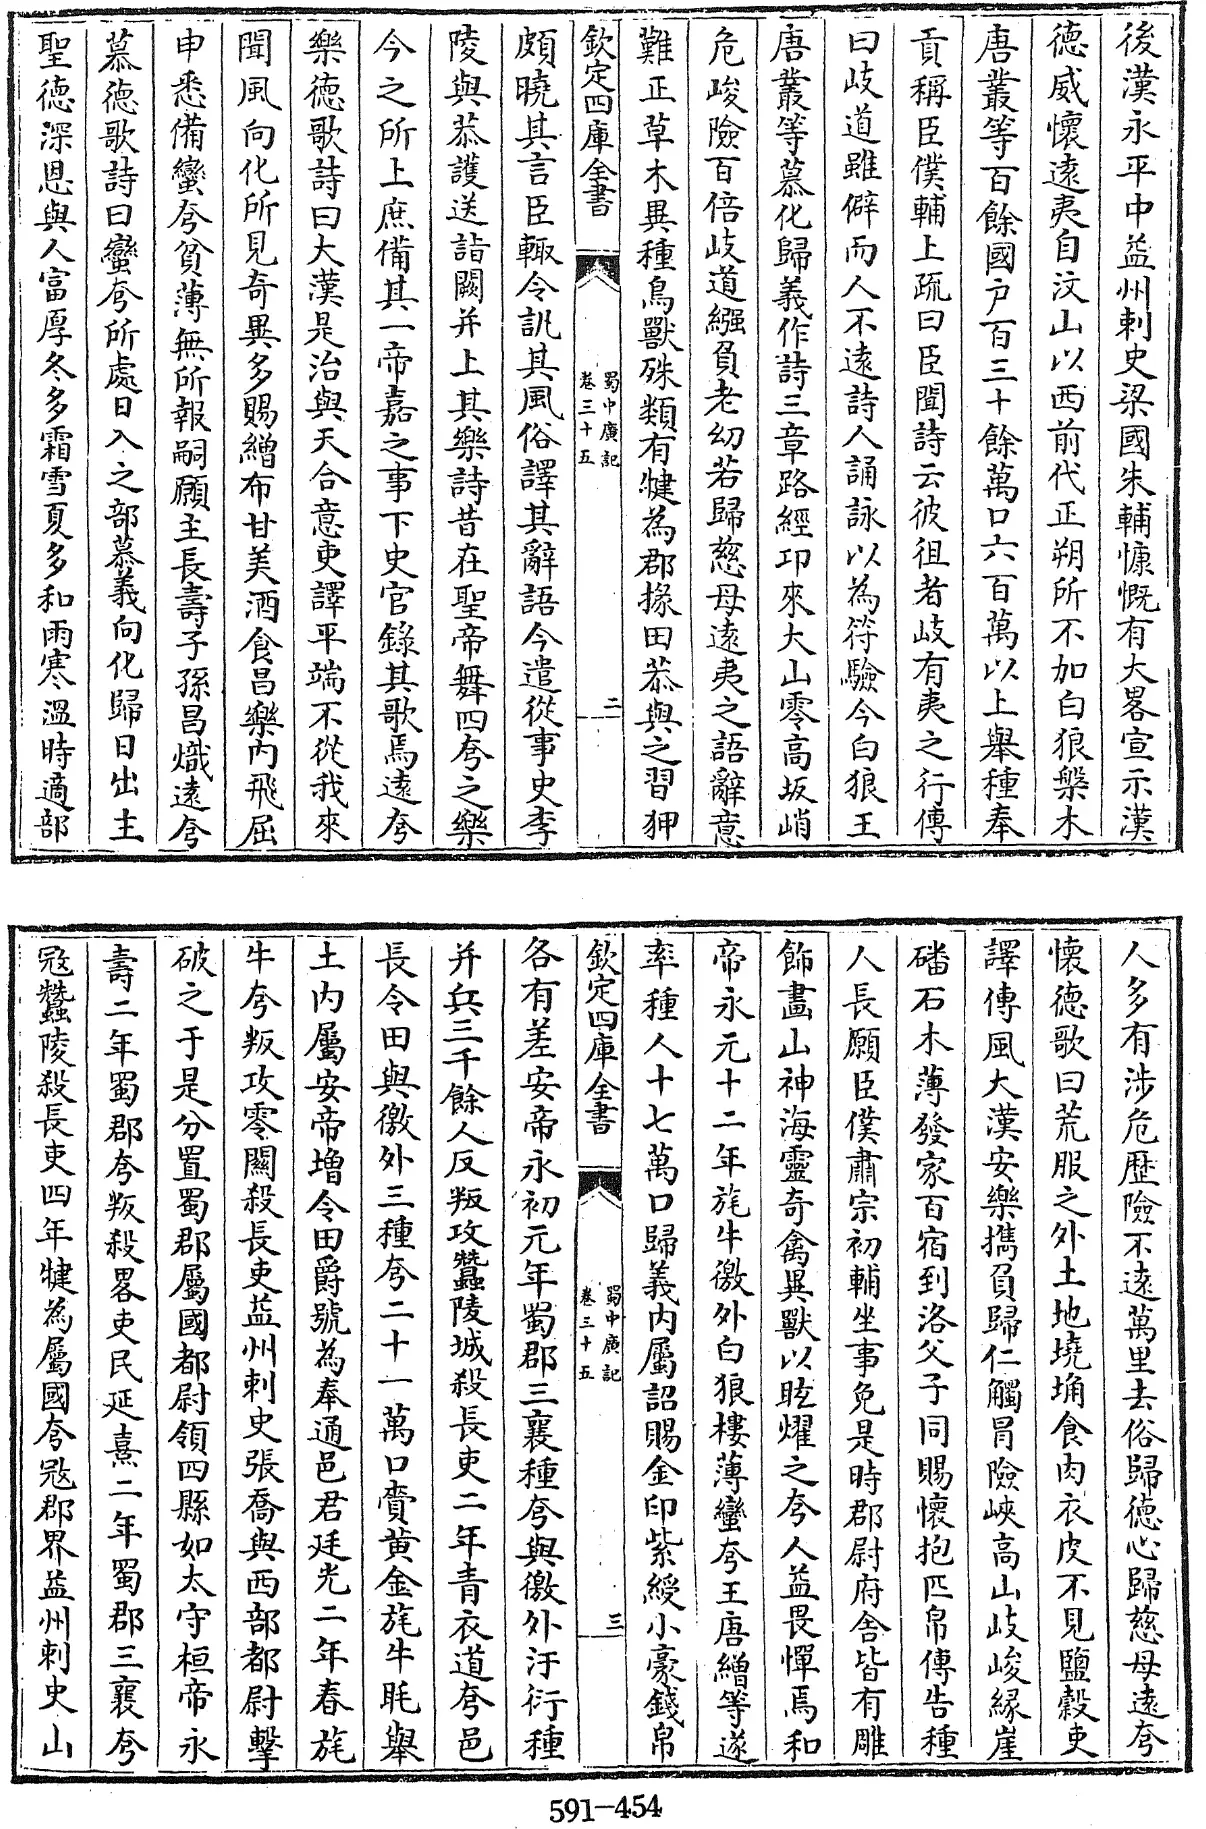 後漢永平中益州刺史梁國朱輔慷慨有大畧宣示漢
徳威懷逺夷自汶山以西前代正朔所不加白狼槃木
唐叢等百餘國户百三十餘萬口六百萬以上舉種奉
貢稱臣僕輔上疏曰臣聞詩云彼徂者岐有夷之行傳
曰岐道雖僻而人不逺詩人誦詠以為符驗今白狼王
唐叢等慕化歸義作詩三章路經卭來大山零高坂峭
危峻險百倍岐道繈負老幼若歸慈母逺夷之語辭意
難正草木異種鳥獸殊類有犍為郡掾田恭與之習狎
欽定四庫全書
蜀中廣記
卷三十五
二
頗曉其言臣輙令訊其風俗譯其辭語今遣從事史李
陵與恭護送詣闕并上其樂詩昔在聖帝舞四夸之樂
今之所上庶備其一帝嘉之事下史官錄其歌焉逺夸
樂徳歌詩曰大漢是治與天合意吏譯平端不從我來
聞風向化所見奇異多賜繒布甘美酒食昌樂肉飛屈
申悉備蠻夸貧薄無所報嗣願主長壽子孫昌熾逺夸
慕徳歌詩曰蠻夸所處日入之部慕義向化歸日出主
聖徳深恩與人富厚冬多霜雪夏多和雨寒溫時適部
人多有涉危歴險不逺萬里去俗歸徳心歸慈母逺夸
懐徳歌曰荒服之外土地墝埆食肉衣皮不見鹽榖吏
譯傳風大漢安樂攜負歸仁觸冒險峽高山岐峻縁崖
磻石木薄發家百宿到洛父子同賜懐抱匹帛傳告種
人長願臣僕肅宗初輔坐事免是時郡尉府舎皆有雕
飾畫山神海靈奇禽異獸以眩燿之夸人益畏憚焉和
帝永元十二年旄牛徼外白狼樓薄蠻夸王唐繒等遂
率種人十七萬口歸義内屬詔賜金印紫綬小豪錢帛
欽定四庫全書
蜀中廣記
卷三十五
三
各有差安帝永初元年蜀郡三襄種夸與徼外汙衍種
并兵三千餘人反叛攻蠶陵城殺長吏二年青衣道夸邑
長令田與徼外三種夸二十一萬口賷黄金旄牛毦舉
土内屬安帝增令田爵號為奉通邑君延光二年春旄
牛夸叛攻零闗殺長吏益州刺史張喬與西部都尉擊
破之于是分置蜀郡屬國都尉領四縣如太守桓帝永
壽二年蜀郡夸叛殺畧吏民延熹二年蜀郡三襄夸
㓂蠶陵殺長吏四年犍為屬國夸㓂郡界益州刺史山
591-454